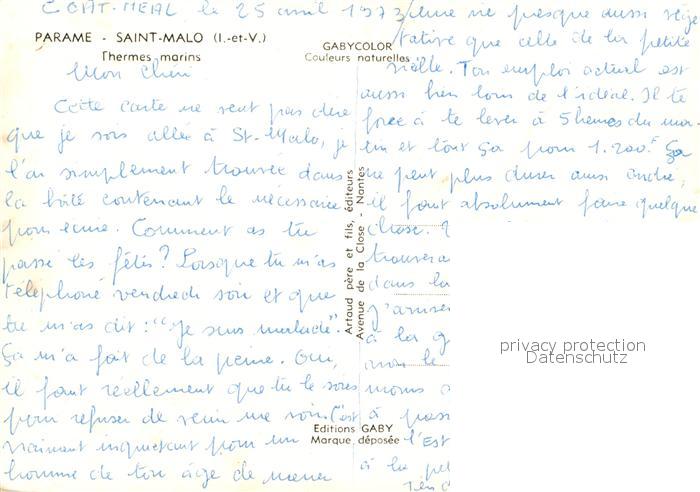 COAT-MEAL le 25 avril 1973
PARAME - SAINT-MALO (I.-et-V.)
Thermes marins
GABYCOLOR
Couleurs naturelles
Mon chéri.
Cette carte ne veut pas dire
que je sois allée à St-Malo, je
l'ai simplement trouvée dans
la boîte contenant le nécessaire
pour écrire. Comment as tu
passé les fêtes? Lorsque tu m'as
téléphoné vendredi soir et que
tu m'as dit: "je suis malade".
Ça m'a fait de la peine. Oui,
il faut réellement que tu le sois
pour refuser de venir me voir. C'est
vraiment inquiétant pour un
homme de ton âge de mener
Artaud père et fils, éditeurs
Avenue de la Close - Nantes
Editions GABY
Marque déposée
une vie presque aussi végé
tative que celle de la petite
vieille. Ton emploi actuel est
aussi bien loin de l'idéal. Il te
force à te lever à 5 heures du ma-
tin et tout ça pour 1.200F. Ça
ne peut plus durer ainsi André,
il faut absolument faire quelque
chose.
dans la
à la
mon le
moins
à pass
l'Est
à la
privacy protection
Datenschutz